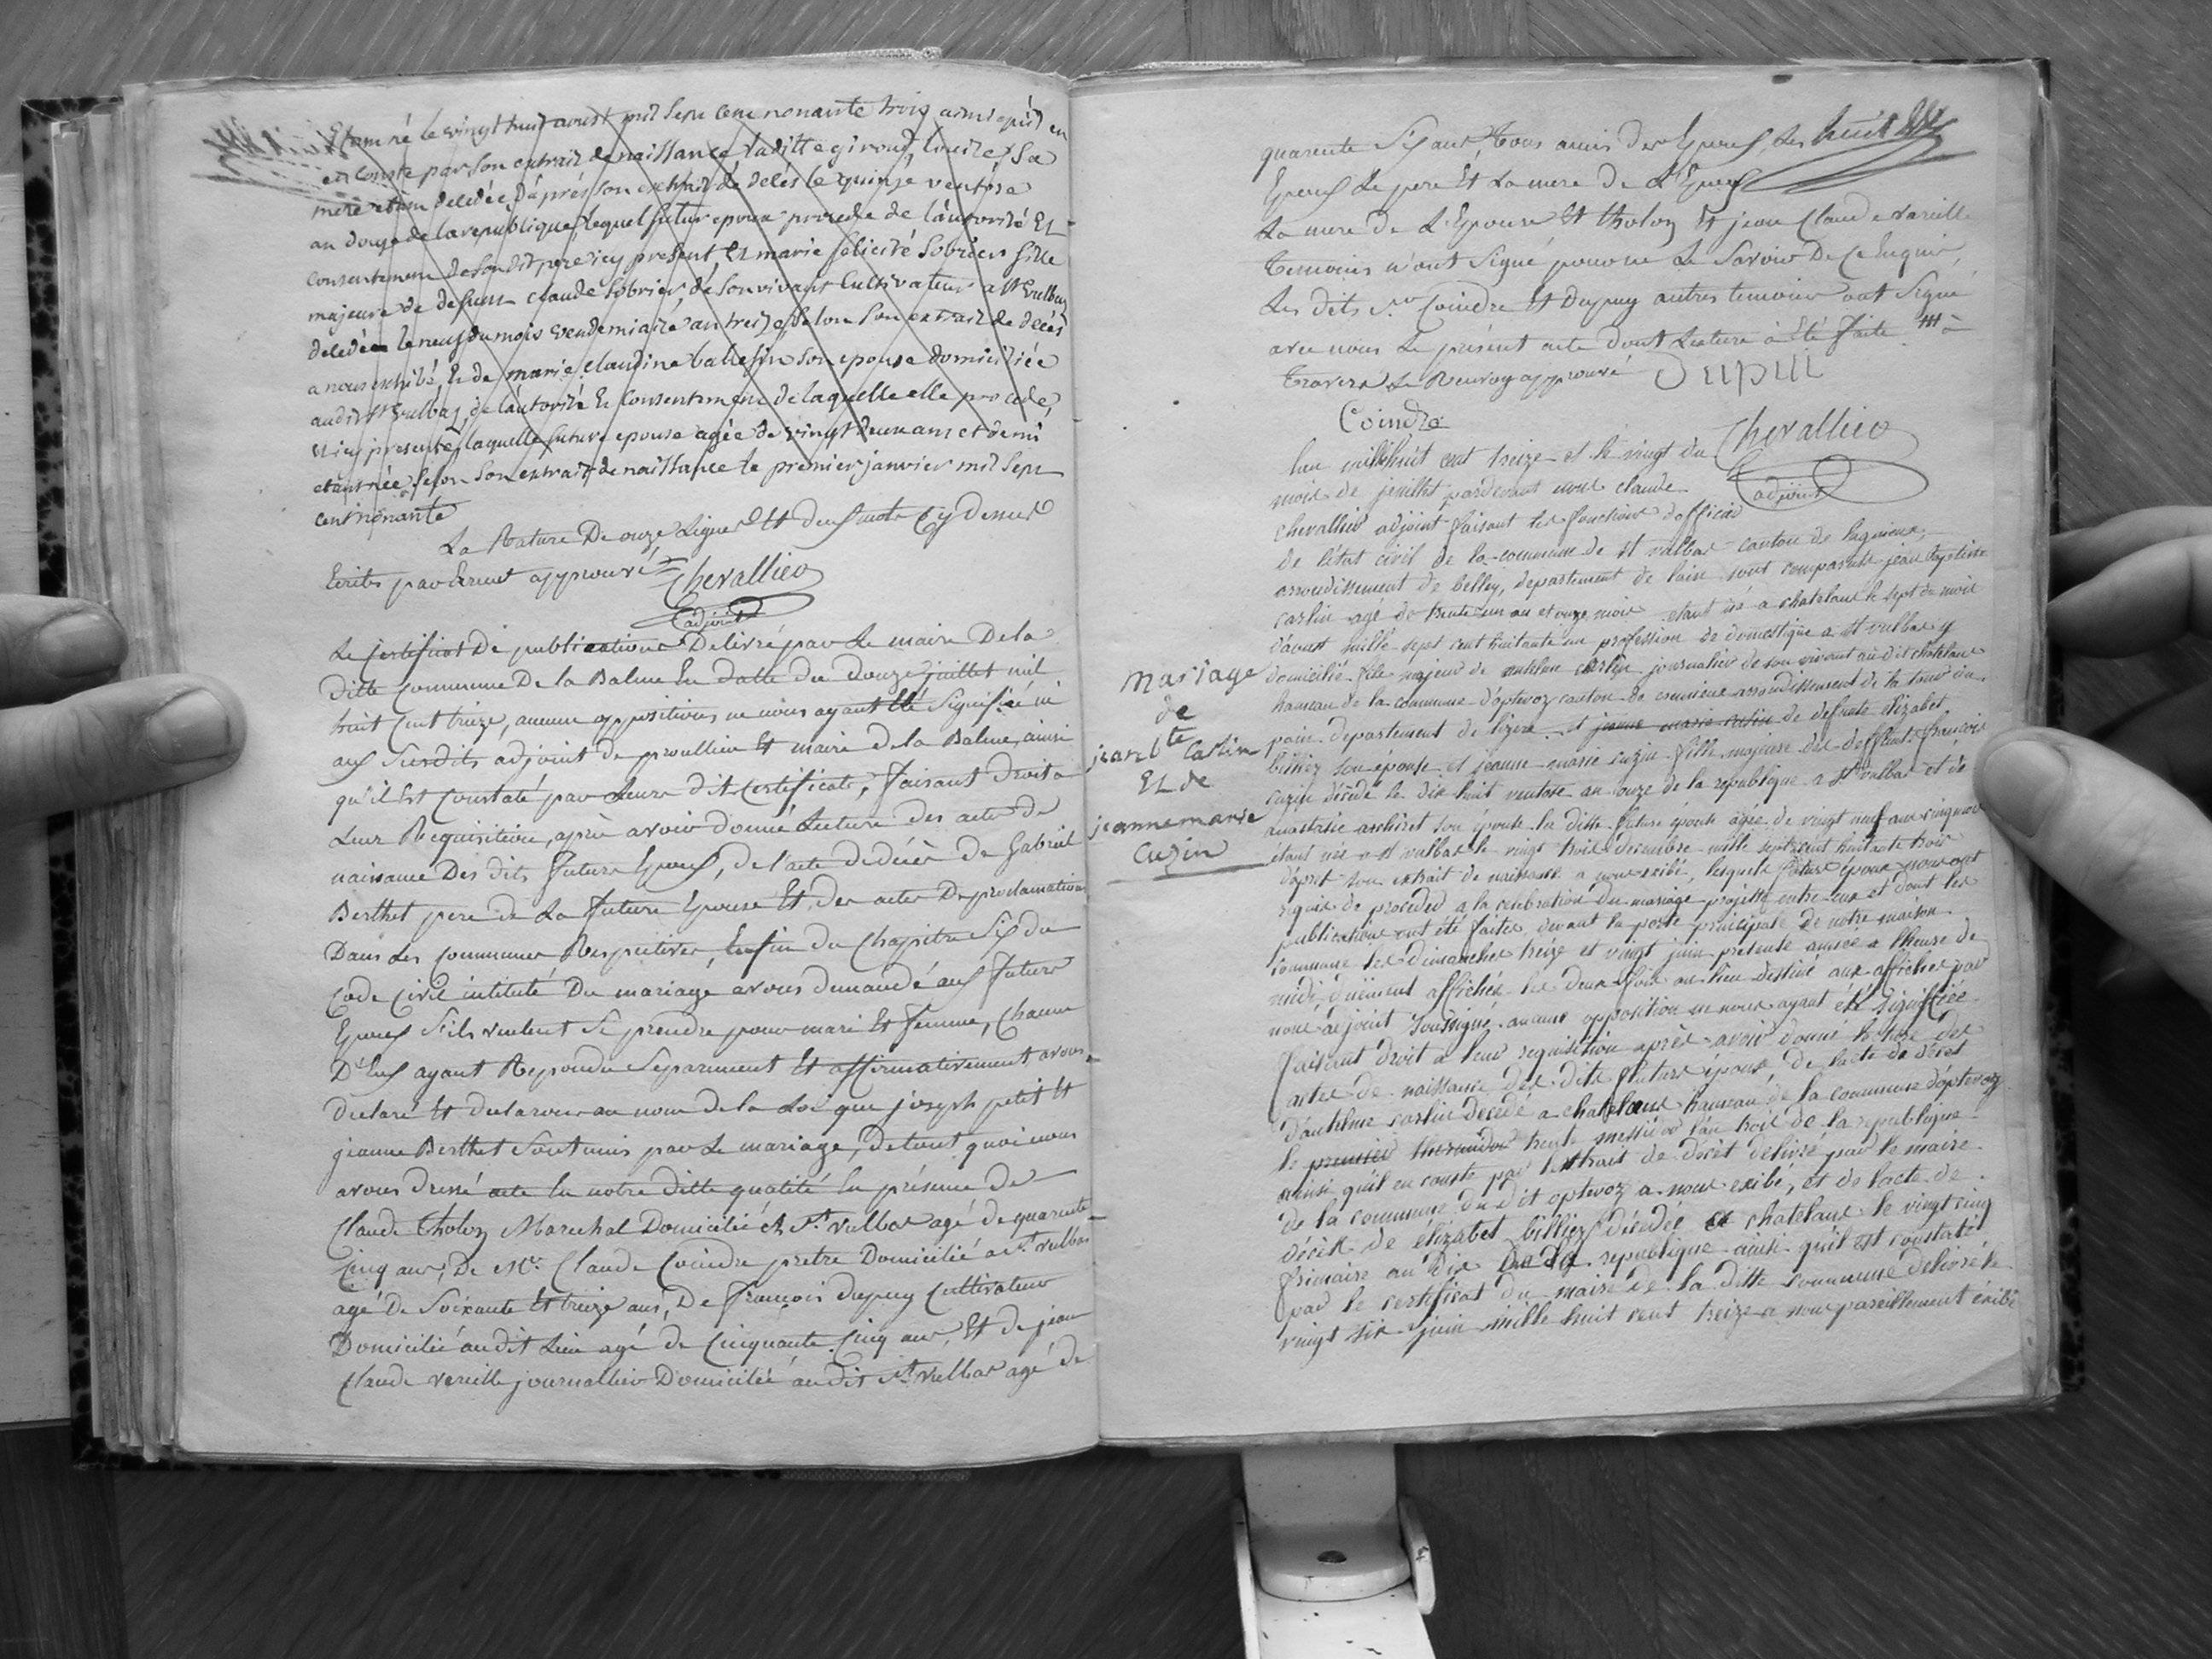 Etant né le vingt huit aoust mil sept cent nonante trois ainsi qu'il en
est conste par son extrait de naissance, laditte giroud, louise, Sa
mere etant decedée, D'après son extrait de décès le quinze ventose
an douze de la republique, lequel futur epoux procede de l'autorité Et
consentement de son dit pere icy present, Et marie felicité Sobrier fille
majeure de defunt claude Sobrier, de son vivant Cultivateur a St Vulbas
decedé le neuf du mois vendemiaire an treize selon Son extrait de décès
a nous exhibé, Et de marie claudine ballefin son epouse domiciliée
audit St Vulbas, de l'autorité Et Consentement de laquelle elle procede,
et icy presente, laquelle future epouse agée de vingt deux ans et demi
etant née, Selon Son extrait de naissance le premier janvier mil Sept
cent nonante
La Rature De onze Lignes Et deux mots Cy dessus
Ecrits par Erreur approuvé Chevallier
adjoint
Le certificat De publications Delivré par Le maire De la
ditte Commune De la Balme En datte du Douze juillet mil
huit Cent treize, aucune oppositions ne nous ayant Eté Signifiée ni
aux Susdits adjoint de proullieu Et maire de la Balme, ainsi
qu'il Est Constaté par Leurs dits Certificats, faisant Droit a
Leur Requisition, après avoir donné Lecture des actes de
naissance Des dits futurs Epoux, de l'acte de décès de Gabriel
Berthet pere de La future Epouse Et des actes De proclamations
Dans Les Communes Respectives, Enfin du Chapitre Six du
Code Civil intitulé Du mariage avons demandé aux futurs
Epoux S'ils veulent Se prendre pour mari Et femme, Chacun
D'Eux ayant Repondu Separement Et affirmativement avons
declaré Et declarons au nom de la Loi que joseph petit Et
jeanne Berthet Sont unis par Le mariage, De tout quoi nous
avons dressé acte En notre ditte qualité En présence De
Claude Tholoz Marechal Domicilié à St Vulbas agé de quarante
Cinq ans, De Mr Claude Coindre pretre Domicilié a St Vulbas
agé De Soixante Et treize ans, De françois Dupuy Cultivateur
Domicilié audit Lieu agé de Cinquante Cinq ans, Et de jean
Claude vareille journallier Domicilié audit St Vulbas agé de
quarante Six ans, Tous amis des Epoux, Les huit
Epoux Le pere Et La mere De L'Epoux
La mere De L'Epouse Et Tholoz Et jean Claude vareille
Temoins n'ont Signé pour ne Le Savoir De Ce Enquis,
Les dits Srs Coindre Et Dupuy autres temoins ont Signé
avec nous Le présent acte Dont Lecture à Eté faite
Travers Le Renvoy approuvé Dupui
Coindre
Chevallier
adjoint
Lan mil huit cent treize et le vingt du
mois de juillet pardevant nous claude
chevallier adjoint faisant les fonctions d'officier
de l'état civil de la commune de St vulbas canton de lagnieux,
arrondissement de belley, departement de lain sont comparus jean baptiste
carlin agé de trente un an et onze mois etant né a chatelans le sept du mois
d'aoust mille sept cent huitante un profession de domestique a St vulbas y
domicilié fils majeur de antelme carlin journalier de son vivant au dit chatelans
hameau de la commune d'optevoz canton de cremieux arrondissement de la tour du
pain departement de lizere et jeanne marie cuzin de defunte elizabet
billiez son épouse et jeanne marie cuzin fille majeure de deffunt francois
cuzin décédé le dix huit ventose an onze de la republique a St vulbas et de
anastasie anchiret son épouse la ditte future épouse agée de vingt neuf ans cinq mois
étant née a St vulbas le vingt trois decembre mille sept cent huitante trois
d'après son extrait de naissance a nous exibé, lesquels futurs époux nous ont
requis de proceder a la celebration du mariage projetté entre eux et dont les
publications ont été faites devant la porte principale de notre maison
commune les dimanches treize et vingt juin présente année a lheure de
midi, duement affichés les deux fois au lieu destiné aux affiches par
nous adjoint soussigné aucune opposition ne nous ayant été signiffiée
faisant droit a leur requisition après avoir donné lecture des
actes de naissance des dits futurs époux, de lacte de décèt
d'antelme carlin decedé a chatelans hameau de la commune d'optevoz
le premier thermidor trente messidor l'an trois de la republique
ainsi qu'il en conste par lextrait de décèt delivré par le maire
de la commune du dit optevoz a nous exibé, et de lacte de
décèt de élizabet billiez décédée a chatelans le vingt cinq
frimaire an dix de la republique ainsi quil est constaté
par le certificat du maire de la ditte commune delivré le
vingt six juin mille huit cent treize a nous pareillement éxibé
Mariage
de
jean bte Carlin
Et de
jeanne marie
Cuzin